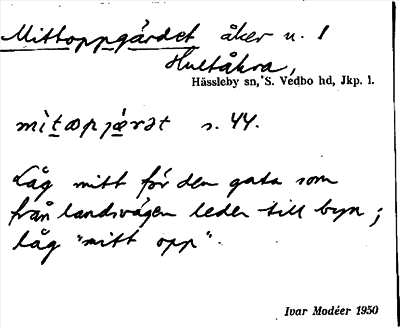 Mittoppgärdet åker u. 1
Hultåkra,
Hässleby sn, S. Vedbo hd, Jkp. l.
mìtɷpjærət s. 44.
Låg mitt för den gata som
från landsvägen leder till byn;
låg "mitt opp".
Ivar Modéer 1950